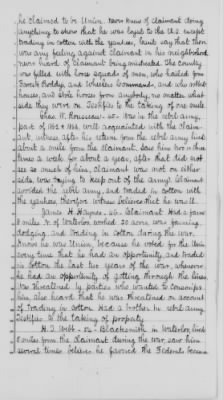 he claimed to be Union. never knew of claimant doing
anything to show that he was loyal to the U.S. except
trading in cotton with the yankees, can't say that there
was any feeling against claimant in his neighborhood
never heard of claimant being molested. The county
was filled with loose squads of men, who hailed from
and Wheelers command, and who robbed
houses, and stole horses from anybody, no matter what
side they were on. Testifies to the taking of one mule.
Chas. W. Rousseau. Was in the rebel army,
part of 1862 & 1863. Well acquainted with the claim-
ant. witness after his return from the rebel army lived
about a mile from the claimant. Saw him two or three
times a week for about a year, after that did not
see so much of him. Claimant was not on either
side. was trying to keep out of the army. Claimant
avoided the rebel army, and traded in cotton with
the yankees therefore witness believes that he was U.
James H. Haynes. Claimant had a farm
miles N of Waterloo, worked 30 acres, was farming
dodging, and trading in cotton during the war.
Knows he was Union, because he voted for the Union
every time that he had an opportunity, and traded
in cotton the last two years of the war, whenever
he had an opportunity of getting through the lines
was threatened by parties who wanted to conscript
him also heard that he was threatened on account
of trading in cotton. Had a brother in rebel army.
Testifies to the taking of property
H. J. Webb. Blacksmith in Waterloo, lived
miles from the claimant during the war, saw him
several times believes he favored the Federals because